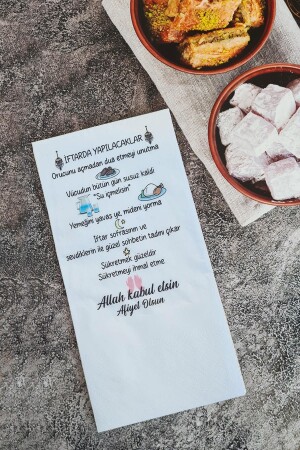 İFTARDA YAPILACAKLAR
Orucunu açmadan dua etmeyi unutma
Vücudun bütün gün susuz kaldı
"Su içmelisin"
Yemeğini yavaş ye mideni yorma
İftar sofrasının ve
sevdiklerin ile güzel sohbetin tadını çıkar
Şükretmek güzeldir
Şükretmeyi ihmal etme
Allah kabul etsin
Afiyet Olsun